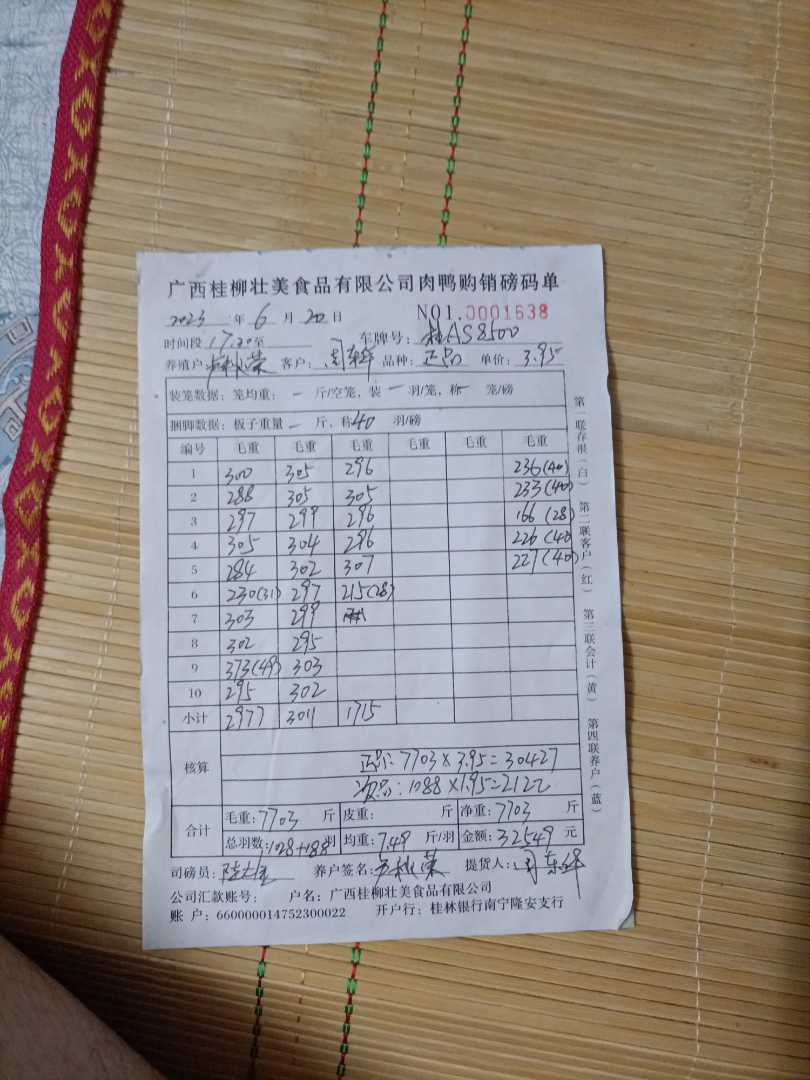 广西桂柳壮美食品有限公司肉鸭购销磅码单
2023 年 6 月 20 日 NO1.0001638
时间段 17.20至 车牌号: 桂AS8500
养殖户: 客户: 品种: 正品 单价: 3.95
装笼数据: 笼均重: 一 斤/空笼, 装 一 羽/笼, 称 一 笼/磅
捆脚数据: 板子重量 一 斤, 称 40 羽/磅
编号 毛重 毛重 毛重 毛重 毛重 毛重
1 300 305 296 236(40)
2 288 305 305 233(40)
3 297 299 296 166(28)
4 305 304 296 226(40
5 284 302 307 227(40)
6 230(31) 297 215(28)
7 303 299
8 302 295
9 373(49) 303
10 295 302
小计 2977 3011 1715
核算 正品: 7703×3.95=30427
次品: 1088×1.95=2122
合计 毛重: 7703 斤 皮重: 斤 净重: 7703 斤
总羽数: 1028+188 羽 均重: 7.49 斤/羽 金额: 32549 元
司磅员: 养户签名: 提货人:
公司汇款账号: 户名: 广西桂柳壮美食品有限公司
账 户: 660000014752300022 开户行: 桂林银行南宁隆安支行
第一联存根(白) 第二联客户(红) 第三联会计(黄) 第四联养户(蓝)